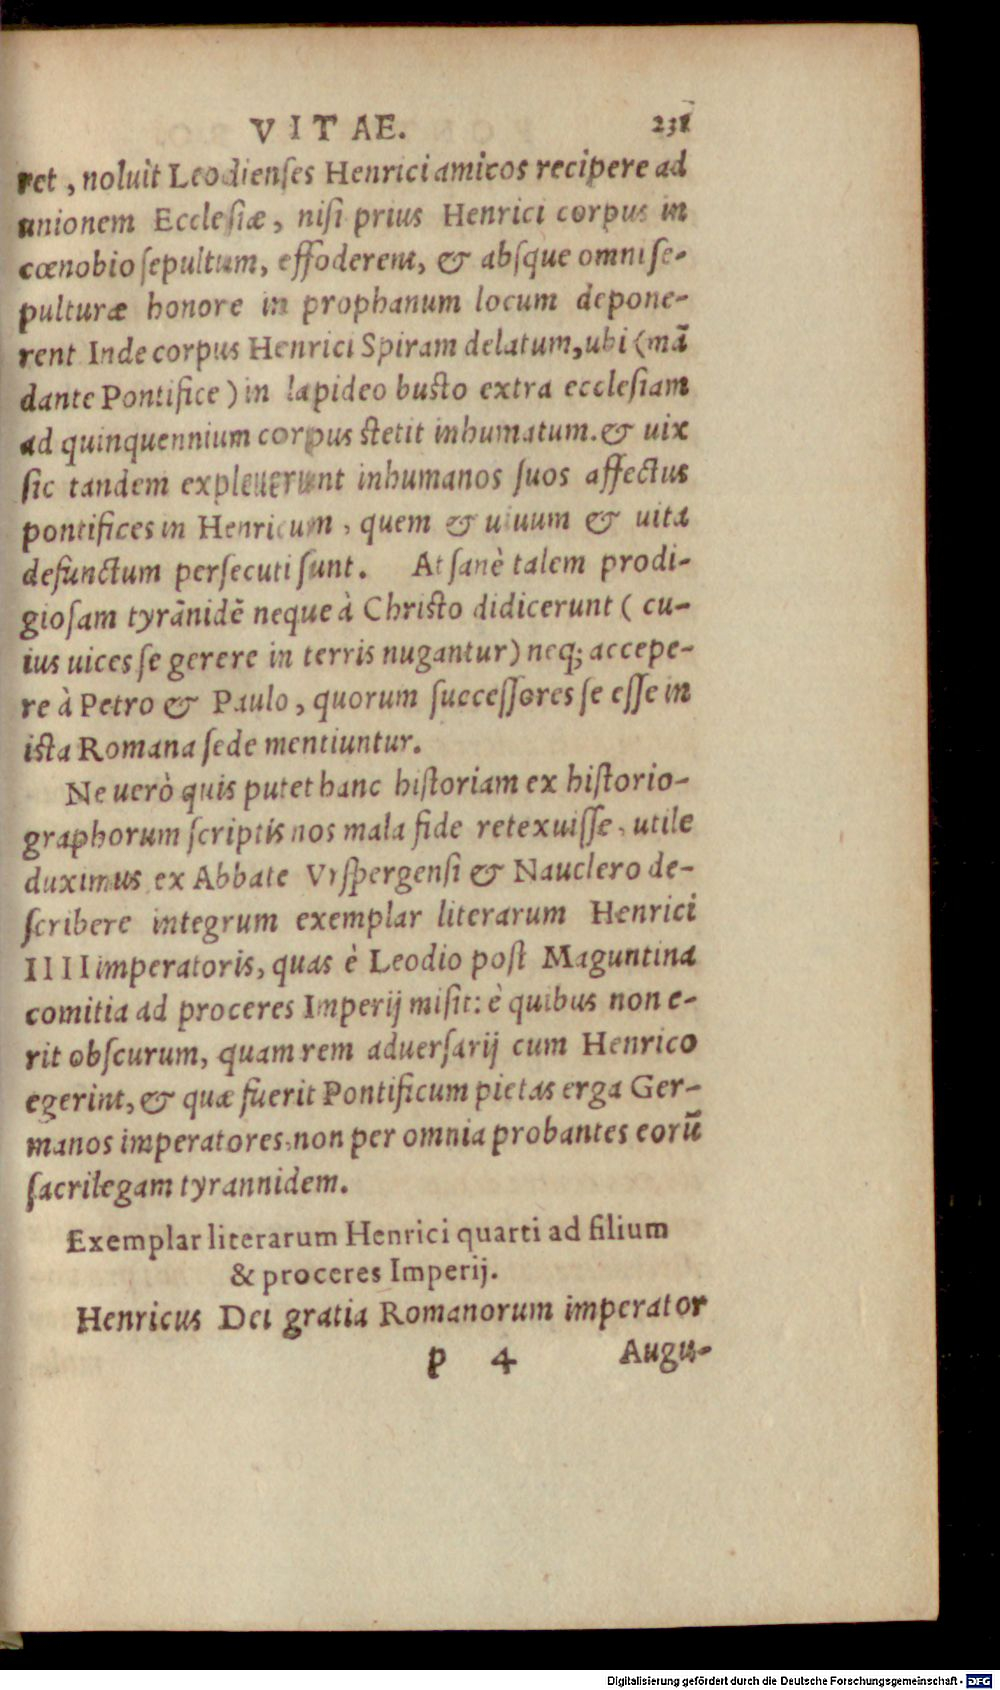 VITAE. 231
ret, noluit Leodienſes Henrici amicos recipere ad
unionem Eccleſiæ, niſi prius Henrici corpus in
cœnobio ſepultum, effoderent, & abſque omni ſe-
pulturæ honore in prophanum locum depone-
rent Inde corpus Henrici Spiram delatum, ubi (mā
dante Pontifice) in lapideo buſto extra eccleſiam
ad quinquennium corpus ſtetit inhumatum. & uix
ſic tandem expleuerunt inhumanos ſuos affectus
pontifices in Henricum, quem & uiuum & uita
defunctum perſecuti ſunt. At ſanè talem prodi-
gioſam tyrānidē neque à Chriſto didicerunt (cu-
ius uices ſe gerere in terris nugantur) neq; accepe-
re à Petro & Paulo, quorum ſucceſſores ſe eſſe in
iſta Romana ſede mentiuntur.
Ne uerò quis putet hanc hiſtoriam ex hiſtorio-
graphorum ſcriptis nos mala fide retexuiſſe, utile
duximus ex Abbate Vrſpergenſi & Nauclero de-
ſcribere integrum exemplar literarum Henrici
IIII imperatoris, quas è Leodio poſt Maguntina
comitia ad proceres Imperij miſit: è quibus non e-
rit obſcurum, quam rem aduerſarij cum Henrico
egerint, & quæ fuerit Pontificum pietas erga Ger-
manos imperatores, non per omnia probantes eorū
ſacrilegam tyrannidem.
Exemplar literarum Henrici quarti ad filium
& proceres Imperij.
Henricus Dei gratia Romanorum imperator
p 4 Augu-
Digitalisierung gefördert durch die Deutsche Forschungsgemeinschaft - DFG